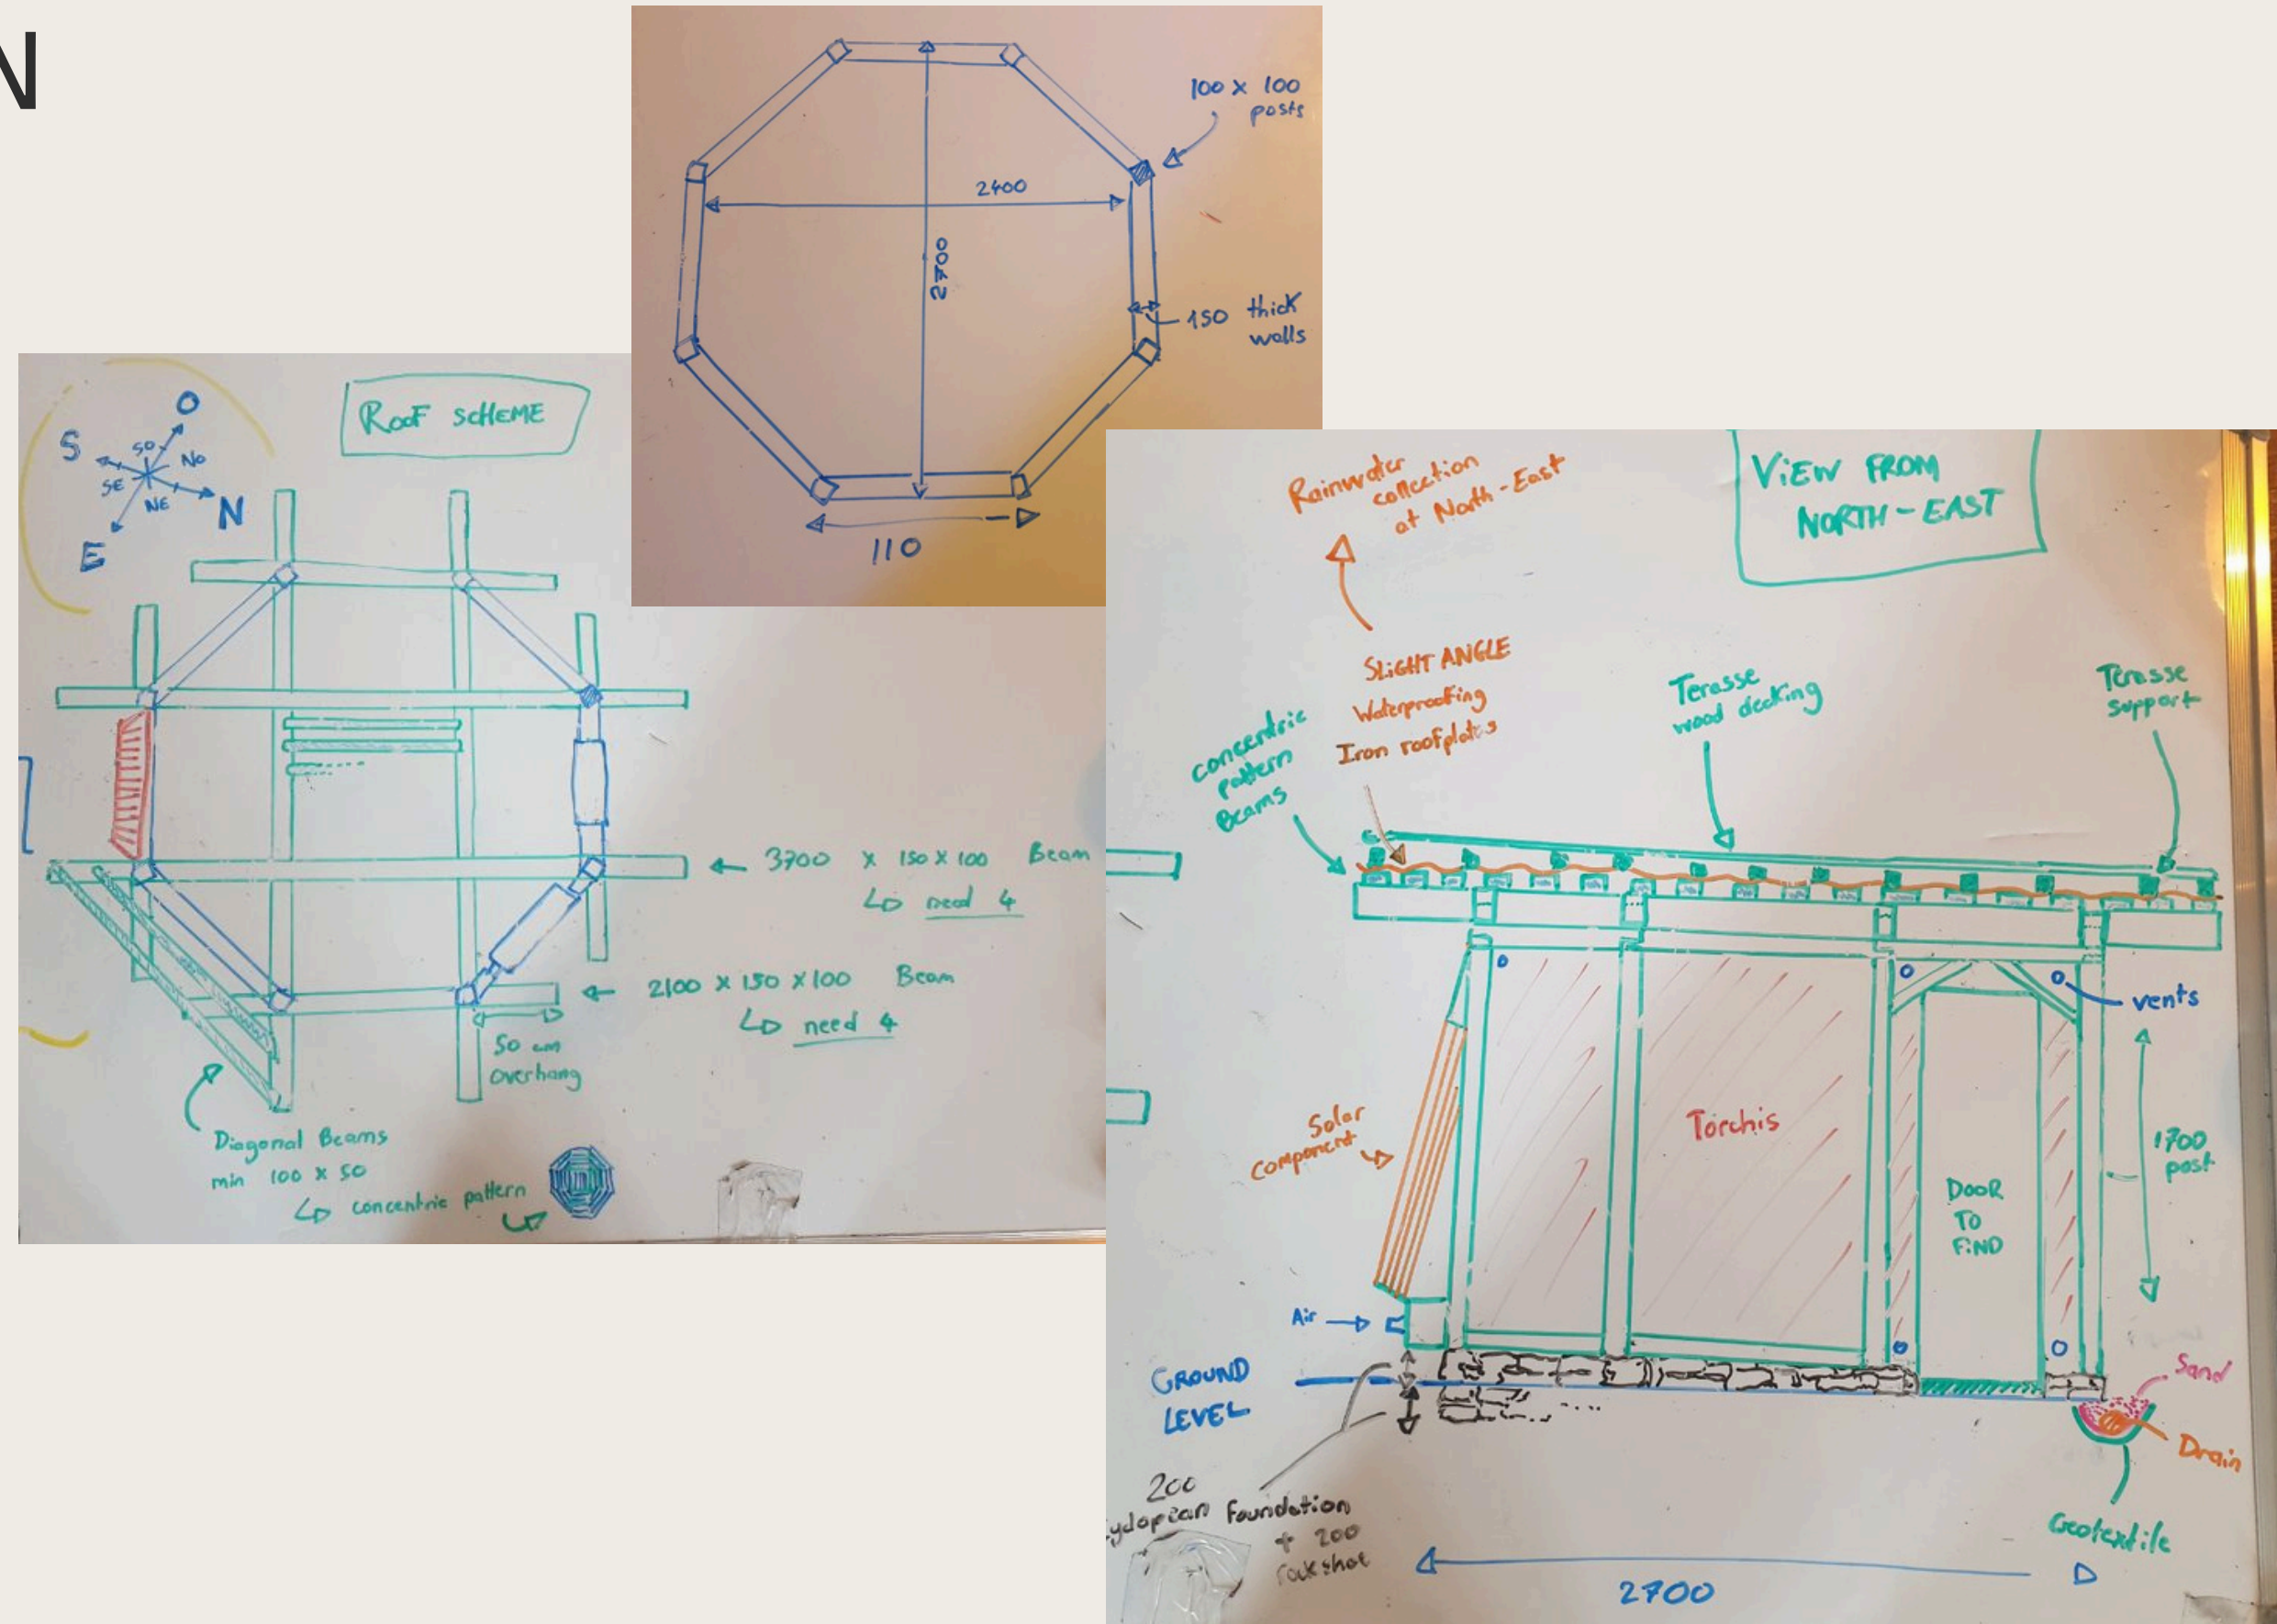 N
100 x 100
posts
2400
2700
150 thick
walls
110
ROOF SCHEME
O
S
SO
NO
SE
NE
N
E
3700 x 150 x 100 Beam
need 4
2100 x 150 x 100 Beam
need 4
50 cm
overhang
Diagonal Beams
min 100 x 50
concentric pattern
VIEW FROM
NORTH-EAST
Rainwater
collection
at North-East
SLIGHT ANGLE
Waterproofing
Iron roofplates
concentric
pattern
Beams
Terasse
wood decking
Terasse
support
vents
Solar
component
Torchis
DOOR
TO
FIND
1700
post
Air
GROUND
LEVEL
Sand
Drain
Geotextile
200
yclopean Foundation
+ 200
2700